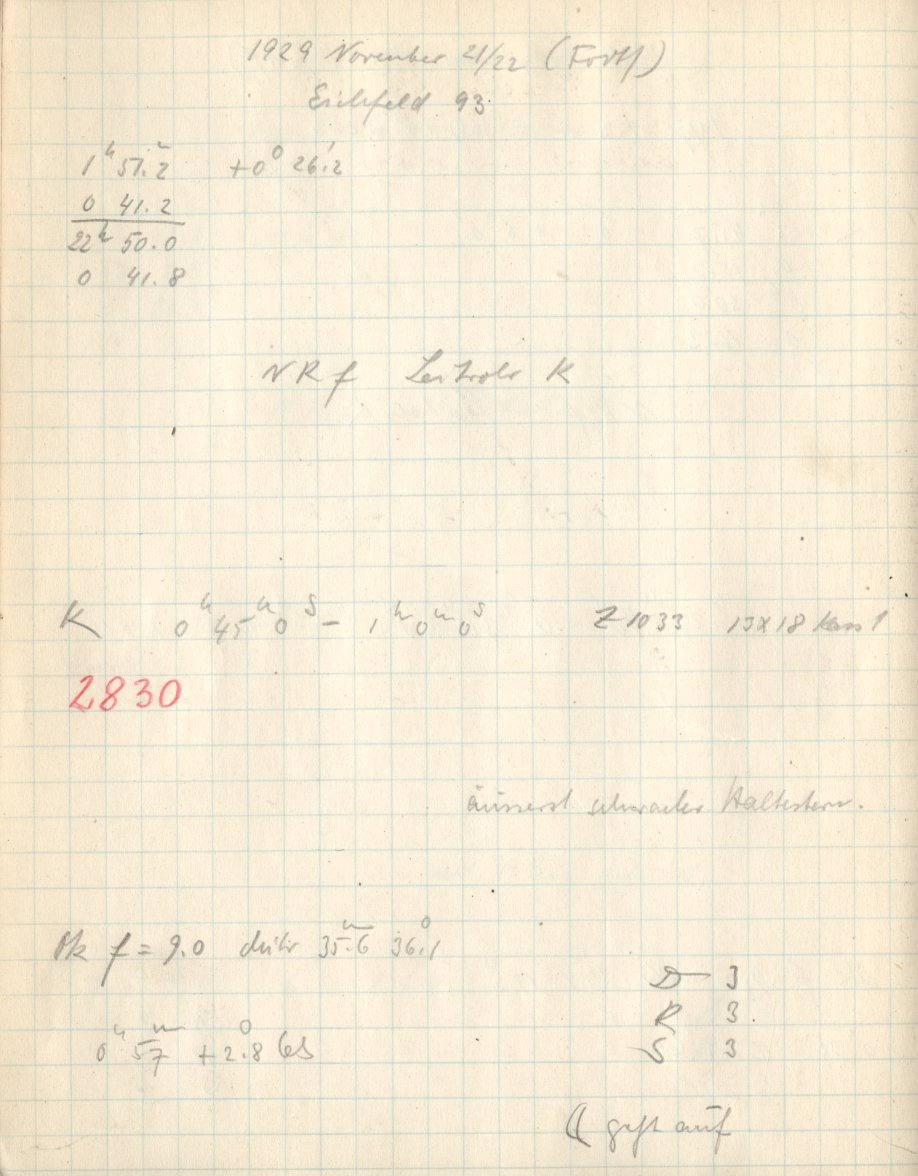 1929 November 21/22 (Forts)
Eichfeld 93
1ʰ 51.ᵐ2 +0° 26.'2
0 41.2
22ʰ 50.0
0 41.8
NRf Leitrohr K
K 0ʰ 45ᵐ 0ˢ – 1ʰ 0ᵐ 0ˢ Z 1033 13x18 Kass 1
2830
äusserst schwacher Haltestern.
f = 9.0 35.ᵐ6 36.°1
0ʰ 57ᵐ +2.°8
D 3
R 3
S 3
☾ geht auf